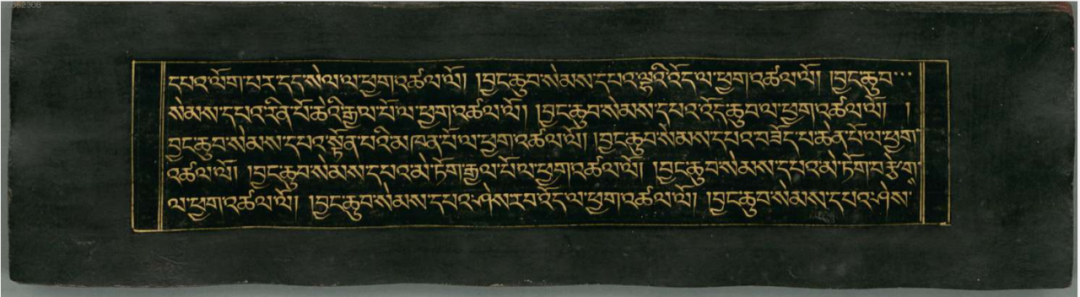 དཔའ་ལོག་པར་དང་སེལ་ལ་ཕྱག་འཚལ་ལོ། །བྱང་ཆུབ་སེམས་དཔའ་ལྷའི་འོད་ལ་ཕྱག་འཚལ་ལོ། །བྱང་ཆུབ་
སེམས་དཔའ་རིན་པོ་ཆེའི་རྒྱལ་པོ་ལ་ཕྱག་འཚལ་ལོ། །བྱང་ཆུབ་སེམས་དཔའ་འོད་ཆུབ་ལ་ཕྱག་འཚལ་ལོ། །
བྱང་ཆུབ་སེམས་དཔའ་སྟོན་པའི་མཁན་པོ་ལ་ཕྱག་འཚལ་ལོ། །བྱང་ཆུབ་སེམས་དཔའ་བཟོད་པ་ཆེན་པོ་ལ་ཕྱག་
འཚལ་ལོ། །བྱང་ཆུབ་སེམས་དཔའ་མེ་ཏོག་རྒྱལ་པོ་ལ་ཕྱག་འཚལ་ལོ། །བྱང་ཆུབ་སེམས་དཔའ་མེ་ཏོག་བརྩེགས་
ལ་ཕྱག་འཚལ་ལོ། །བྱང་ཆུབ་སེམས་དཔའ་ཤེས་རབ་འོད་ལ་ཕྱག་འཚལ་ལོ། །བྱང་ཆུབ་སེམས་དཔའ་ཤེས་